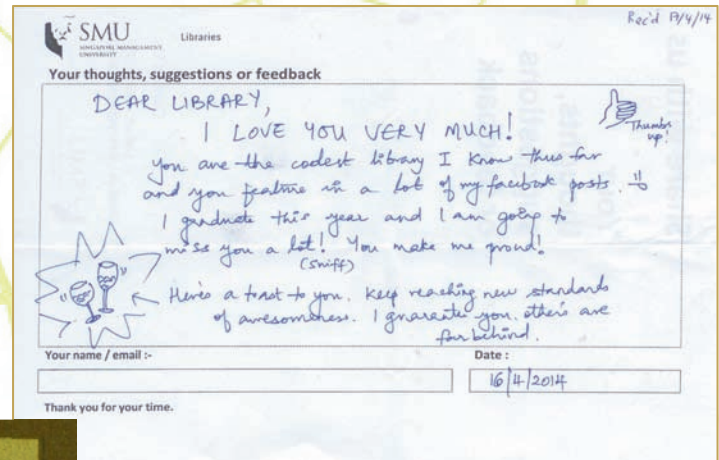 Rec'd 17/4/14
SMU
SINGAPORE MANAGEMENT
UNIVERSITY
Libraries
Your thoughts, suggestions or feedback
DEAR LIBRARY,
I LOVE YOU VERY MUCH!
Thumbs
up!
You are the coolest library I know thus far
and you feature in a lot of my facebook posts.
I graduate this year and I am going to
miss you a lot! You make me proud!
(sniff)
Here's a toast to you. Keep reaching new standards
of awesomeness. I guarantee you, others are
far behind.
Your name / email :-
Date :
16/4/2014
Thank you for your time.